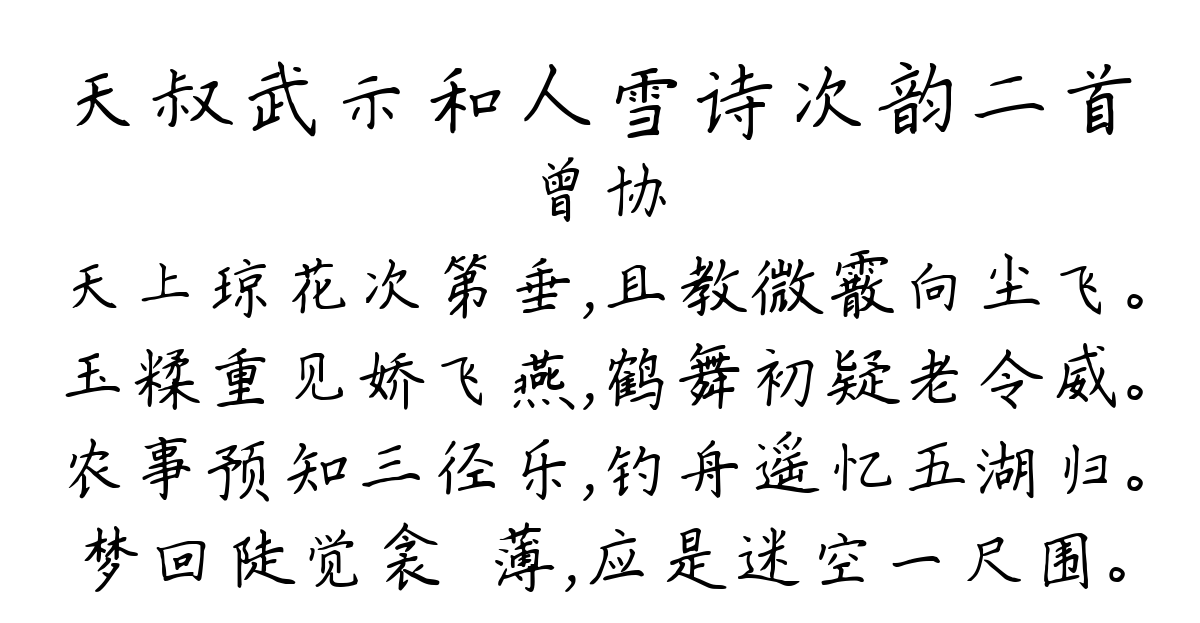 天叔武示和人雪诗次韵二首
曾协
天上琼花次第垂,且教微霰向尘飞。
玉糅重见娇飞燕,鹤舞初疑老令威。
农事预知三径乐,钓舟遥忆五湖归。
梦回陡觉衾 薄,应是迷空一尺围。